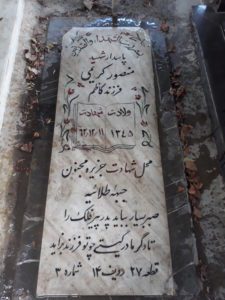 پاسدار شهید
منصور کریمی
فرزند کاظم
ولادت شهادت
۱۳۴۵ ۶۲،۱۲،۱۱
محل شهادت جزیره مجنون
جبهه طلائیه
صبر بسیار بباید پدر پیر فلک را
تا دگر مادر گیتی چو تو فرزند بزاید
قطعه ۲۷ ردیف ۱۴ شماره ۳